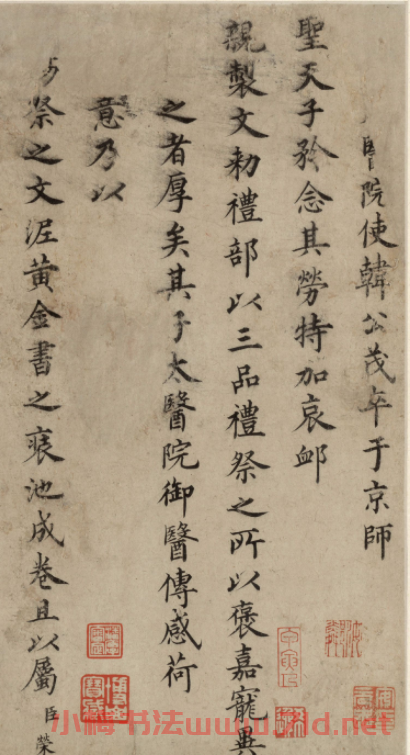 醫院使韓公茂卒于京師
聖天子矜念其勞特加哀卹
親製文勅禮部以三品禮祭之所以褒嘉寵異
之者厚矣其子太醫院御醫傳感荷
意乃以
祭之文泥黃金書之池成卷且以屬臣榮
书法